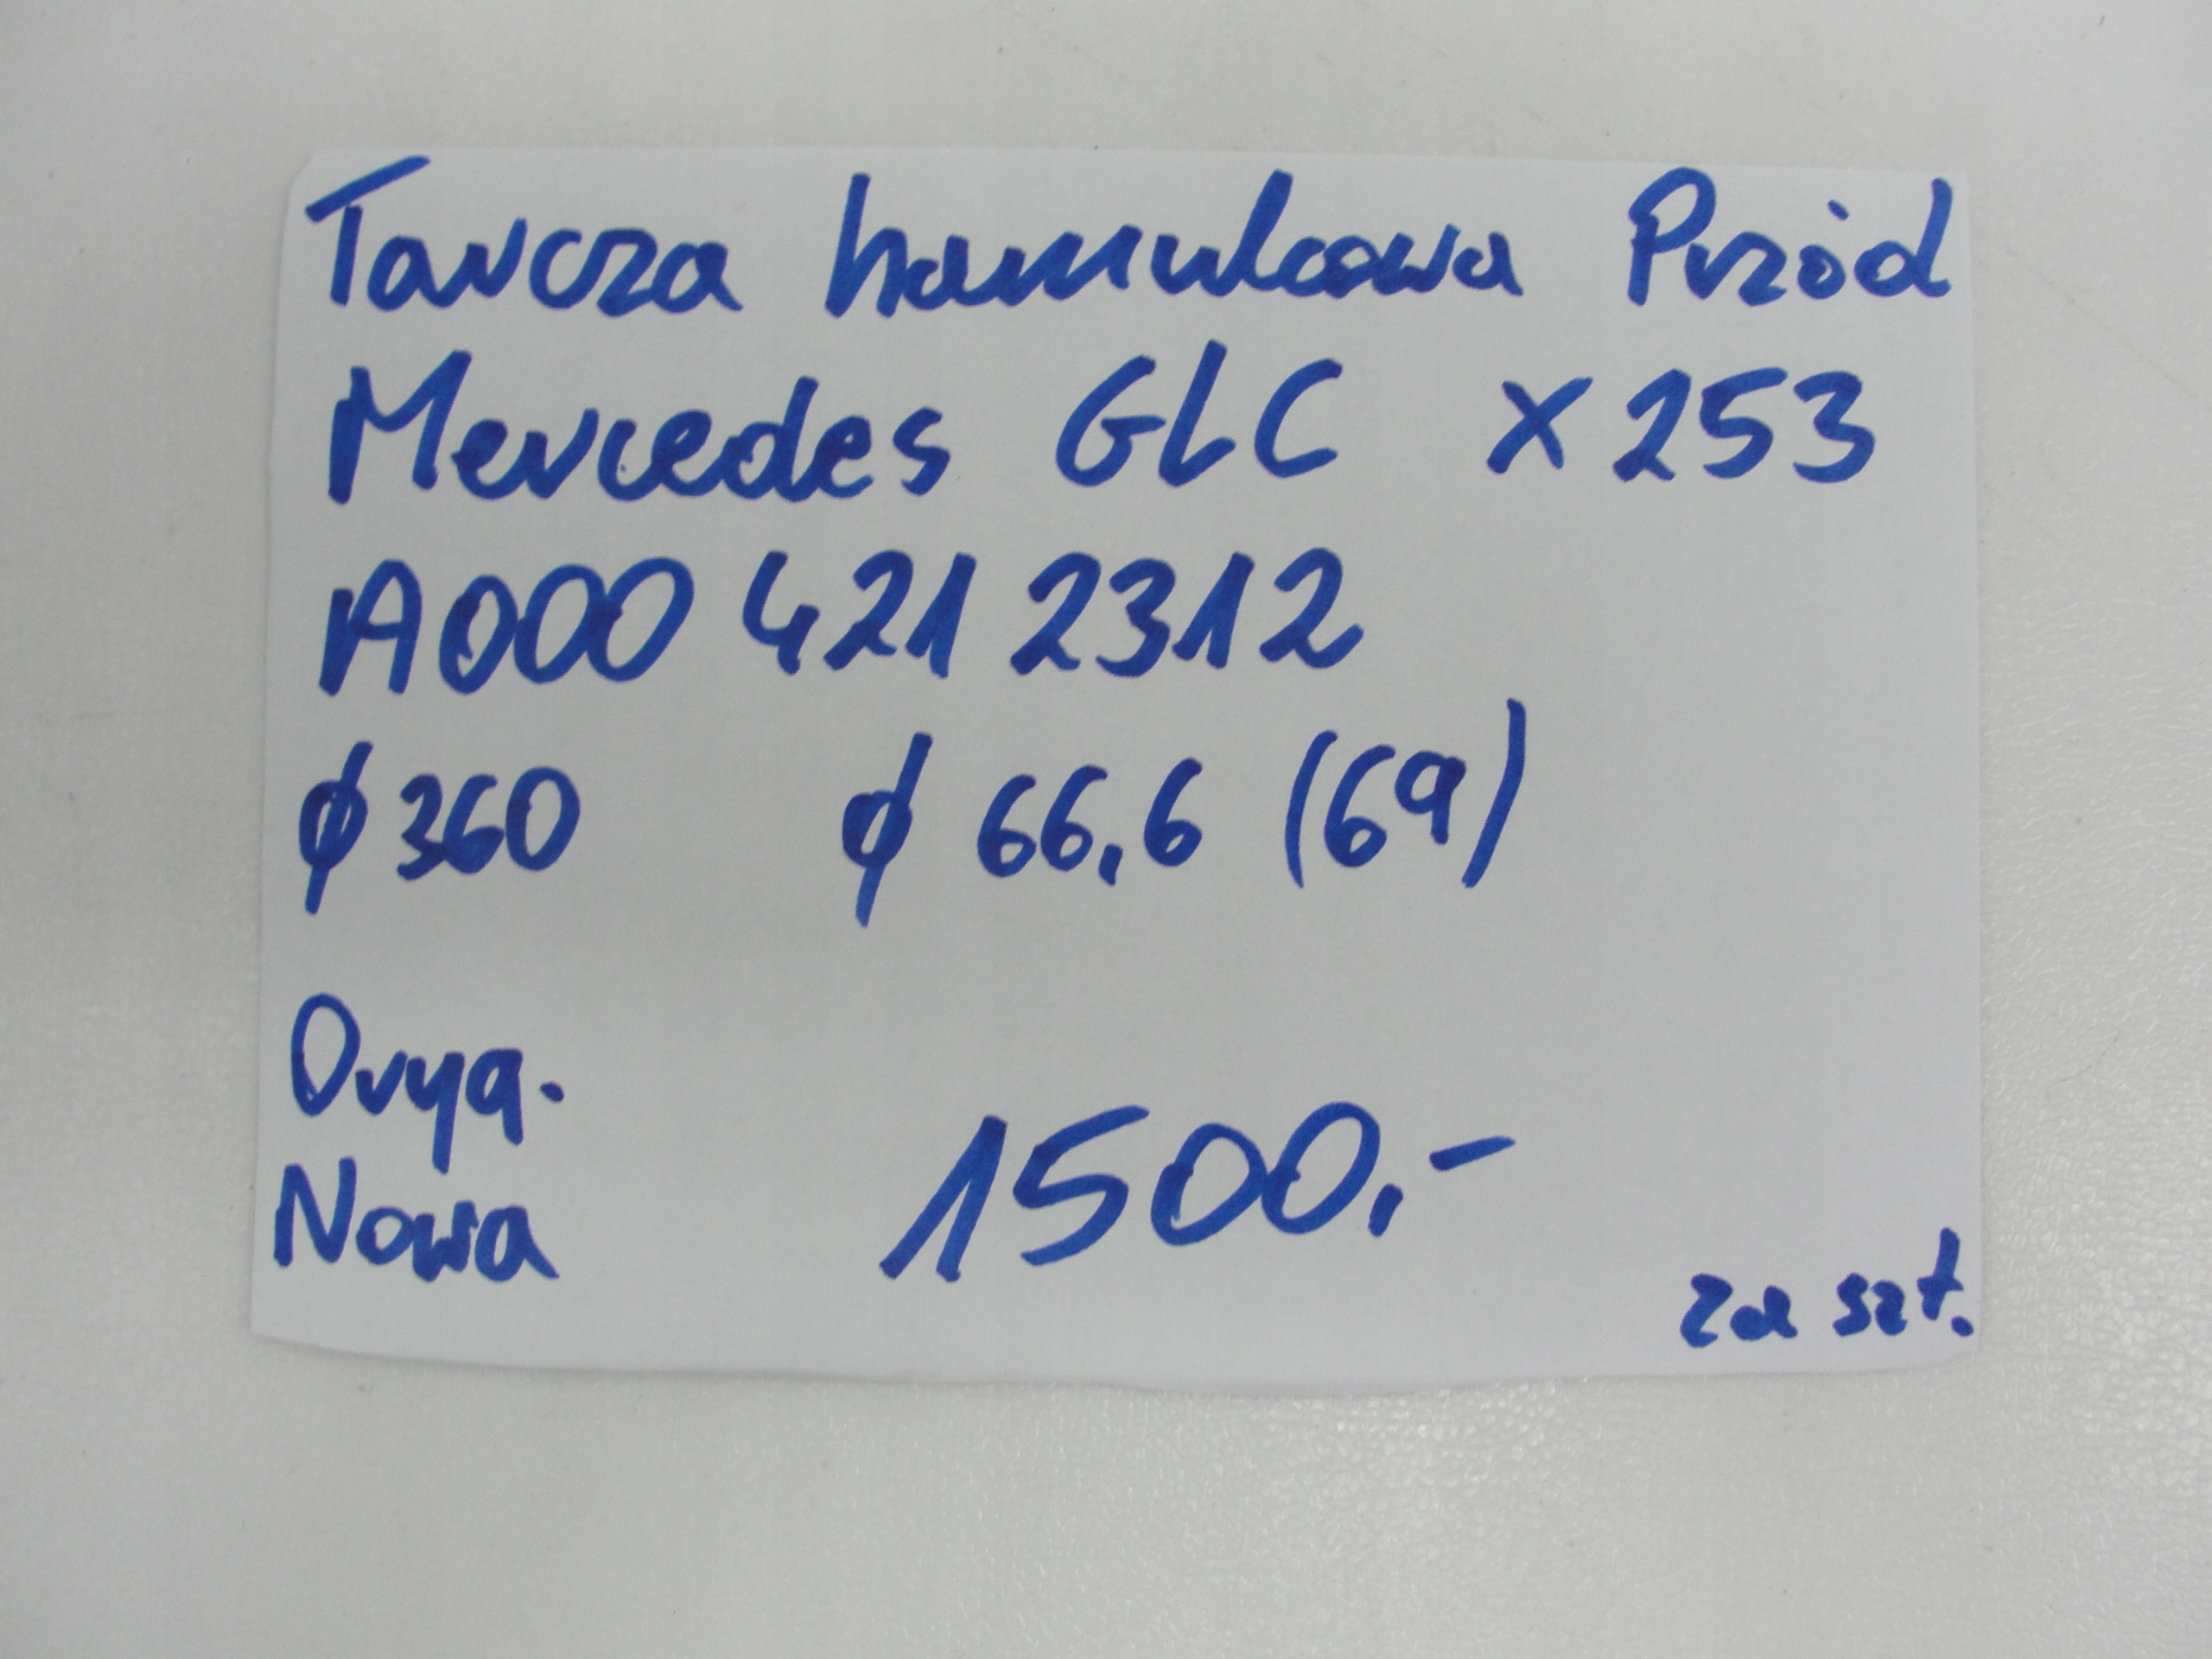 Tarcza hamulcowa Przód
Mercedes GLC X253
A000 421 2312
ϕ360 ϕ 66,6 (69)
Oryg.
Nowa 1500,-
za szt.